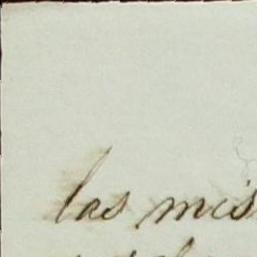 las mis